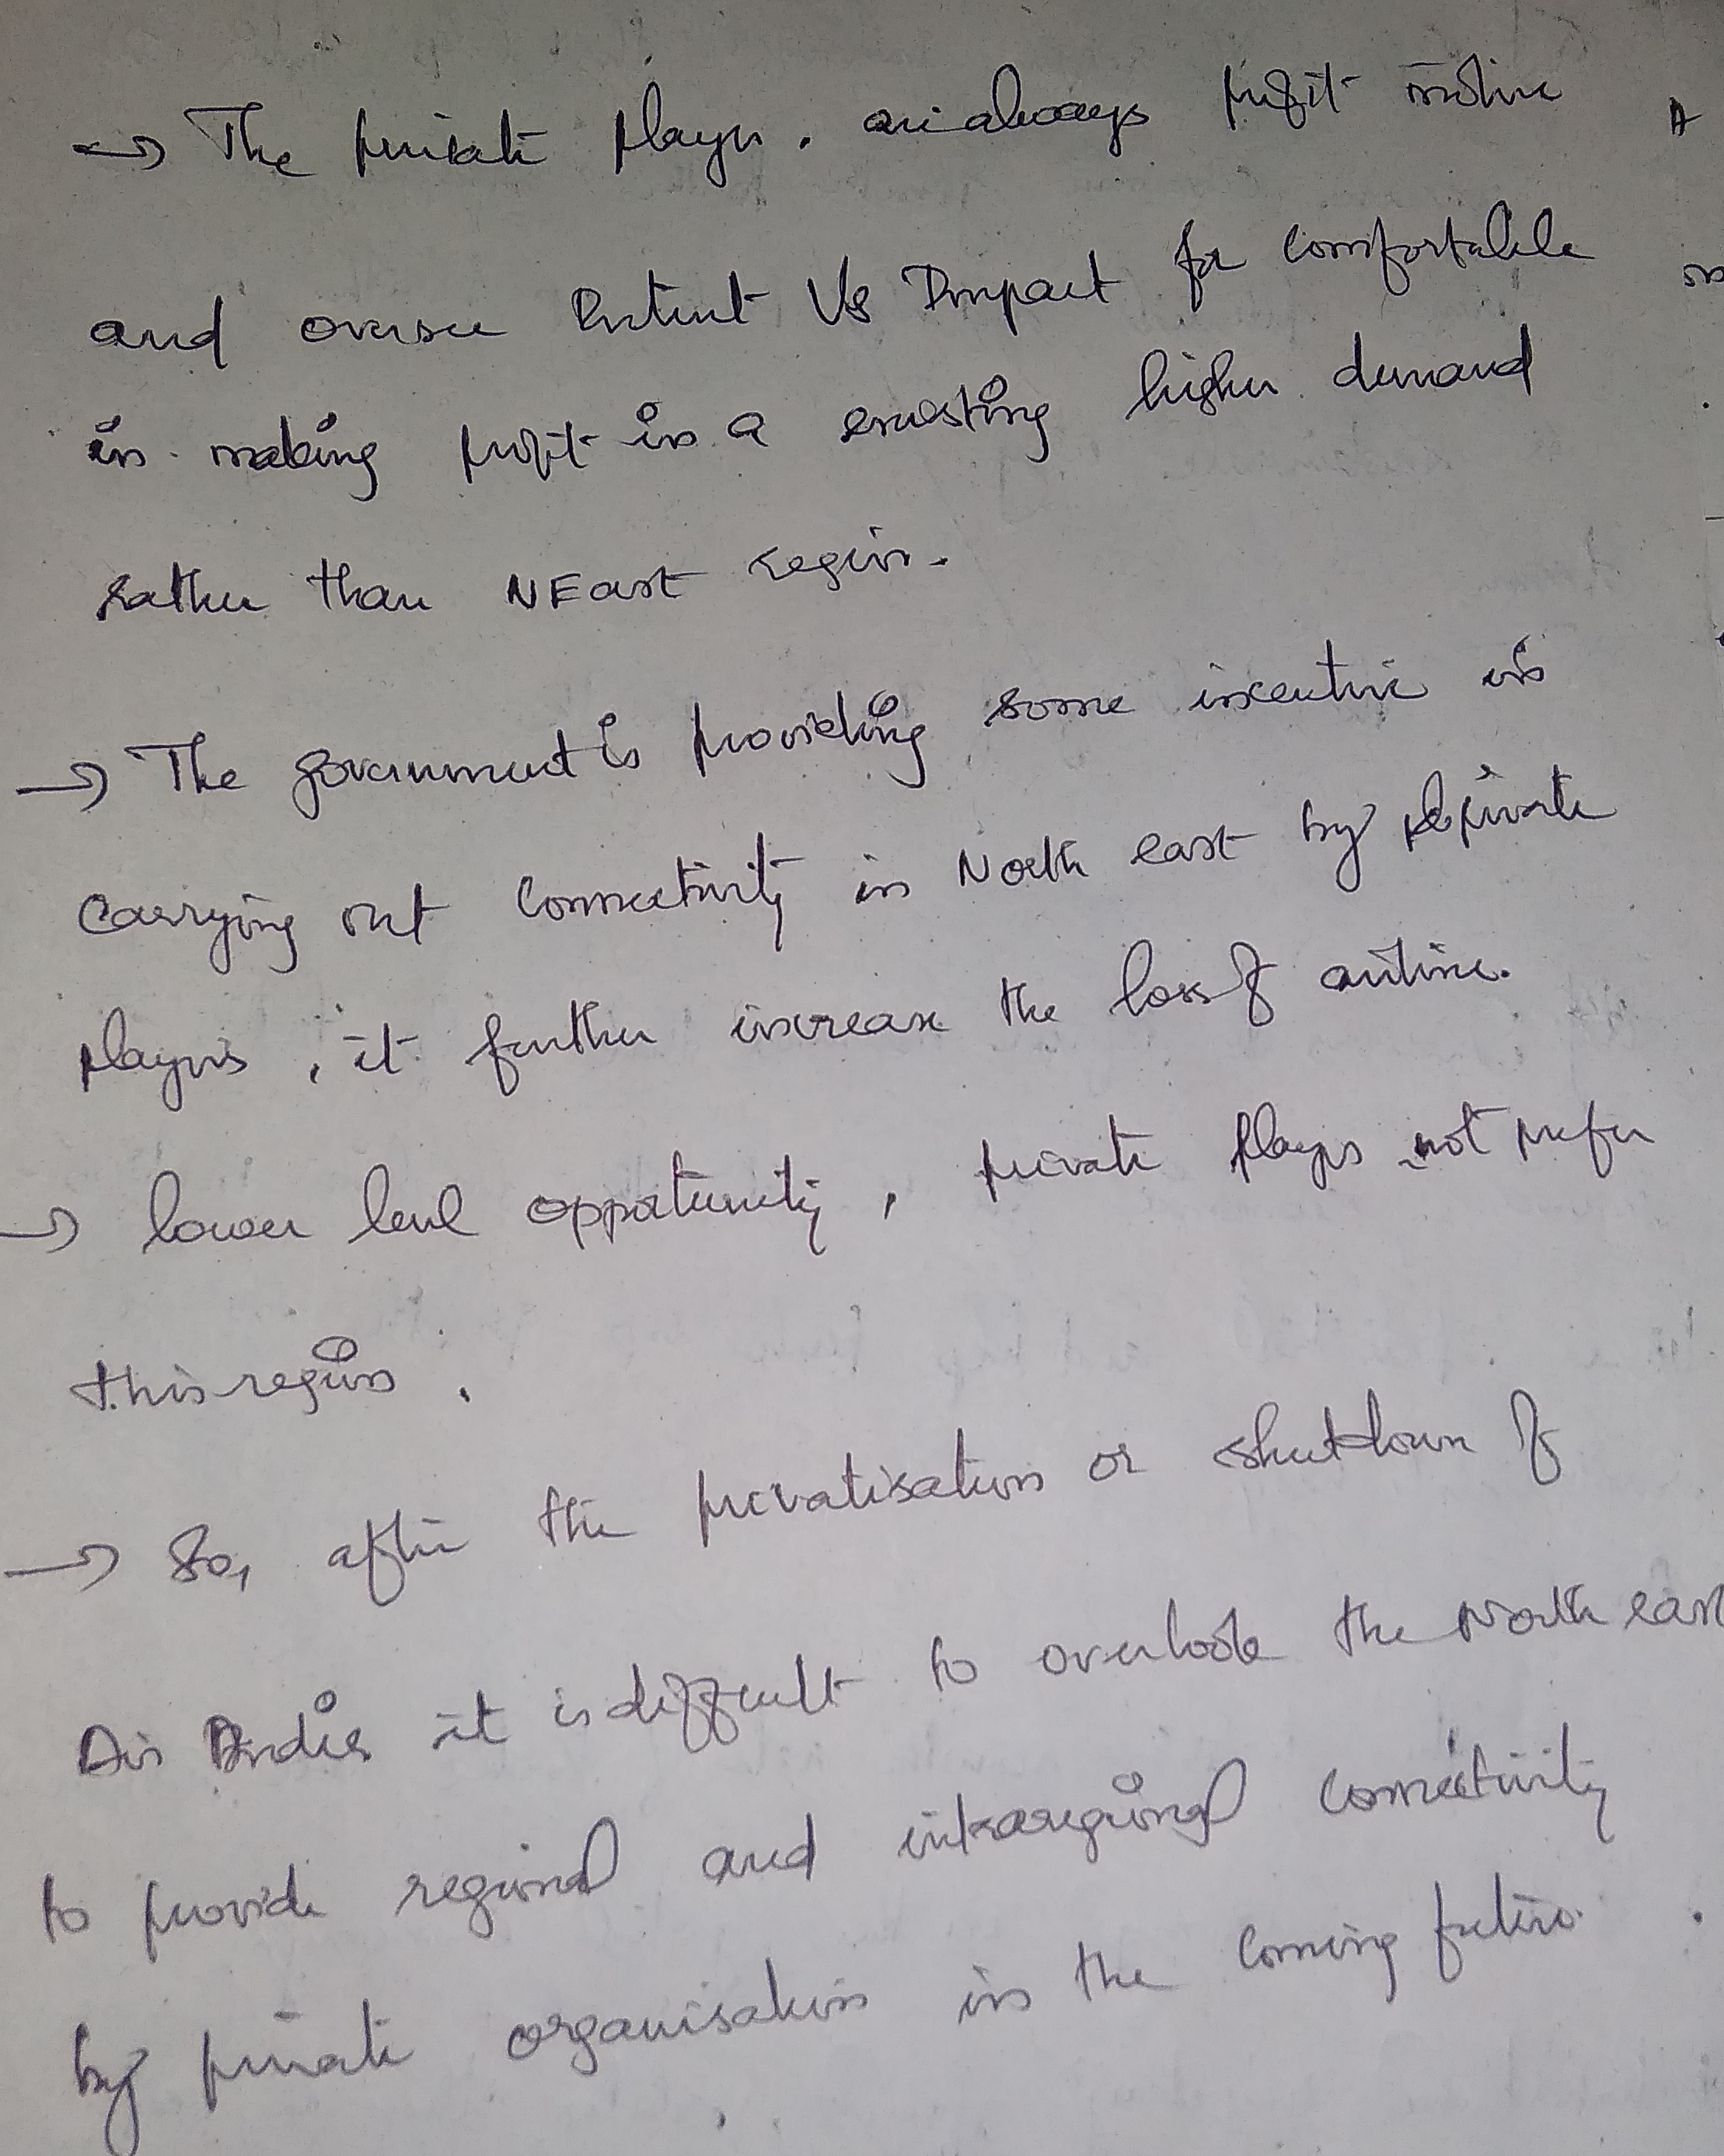 → The private player. are always profit motive
and oversee Intent Vs Impact for comfortable
in making profit in a existing higher demand
rather than NEast region.
→ The government is providing some incentive in
carrying out connectivity in North east by private
players, it further increase the loss of airline.
→ lower level opportunity, private players not prefer
this region.
→ So, after the privatisation or shutdown of
Air India it is difficult to overlook the North east
to provide regional and intraregional connectivity
by private organisation in the coming future.